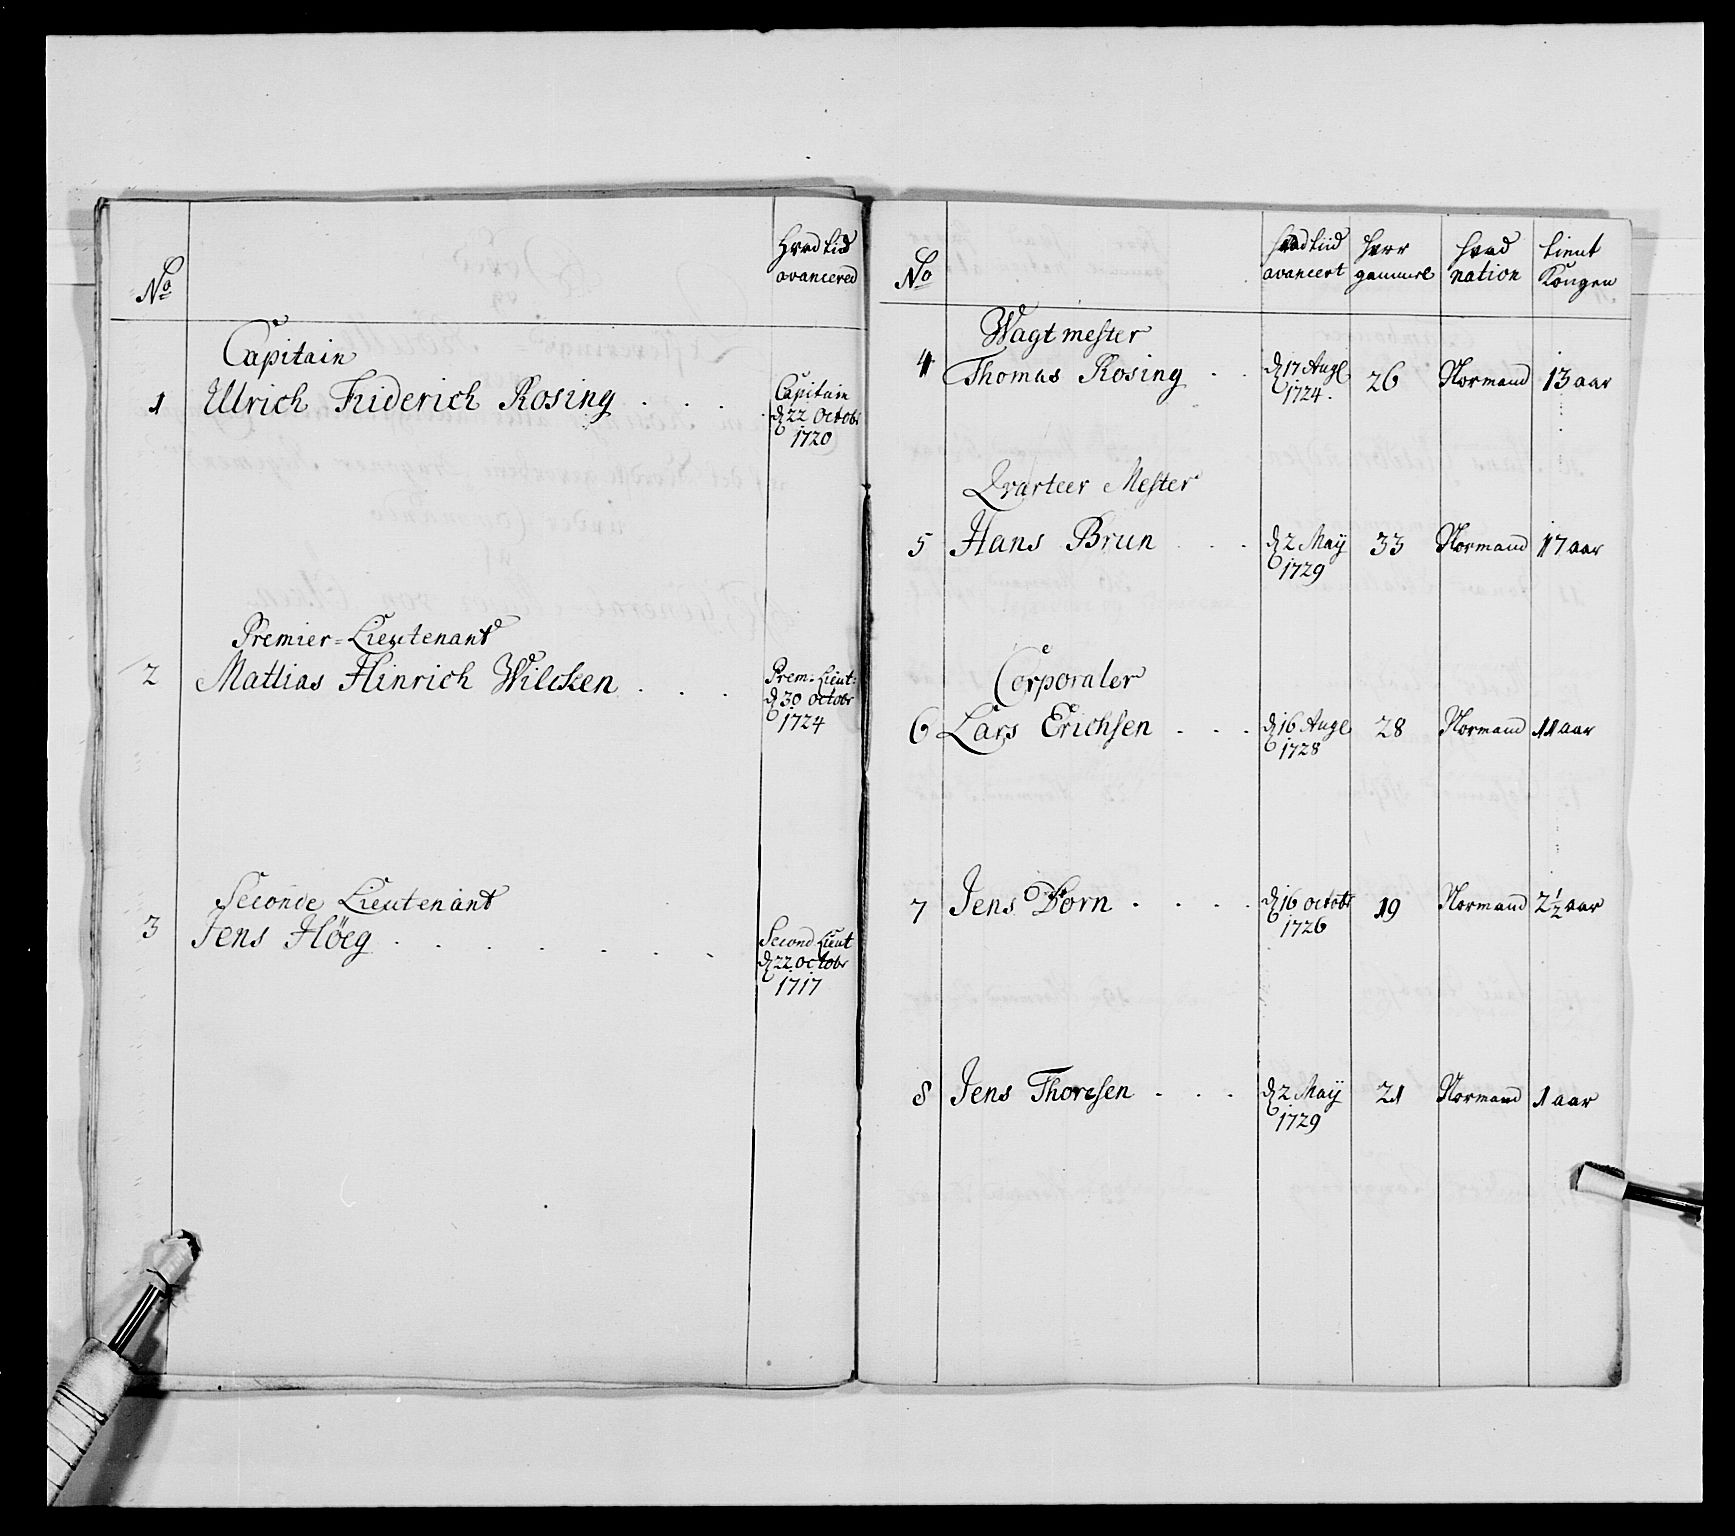 No
Hvad tid
avancered
Capitain
1 Ulrich Friderich Rosing . . . .
Capitain
d 22 Octobr
1720
Premier=Lieutenant
2 Mattias Hinrich Wilcken . . .
Prem: Lieut:
d 30 octobr
1724
Seconde Lieutenant
3 Jens Höeg . . . . . . .
Second Lieut
d 22 octobr
1717
No
hvad tiid
avancert
hvor
gammel
hvad
nation
tient
Kongen
Wagtmester
4 Thomas Rosing . . d 17 Aug 1724. 26 Normand 13 aar
Qvarteer Mester
5 Hans Brun . . . d 2 May 1729 33 Normand 17 aar
Corporaler
6 Lars Erichsen . . . d 16 Aug 1728 28 Normand 11 aar
7 Jens Dorn . . . . d 16 octobr 1726 19 Normand 2½ aar
8 Jens Thoresen . . . d 2 May 1729 21 Normand 1 aar